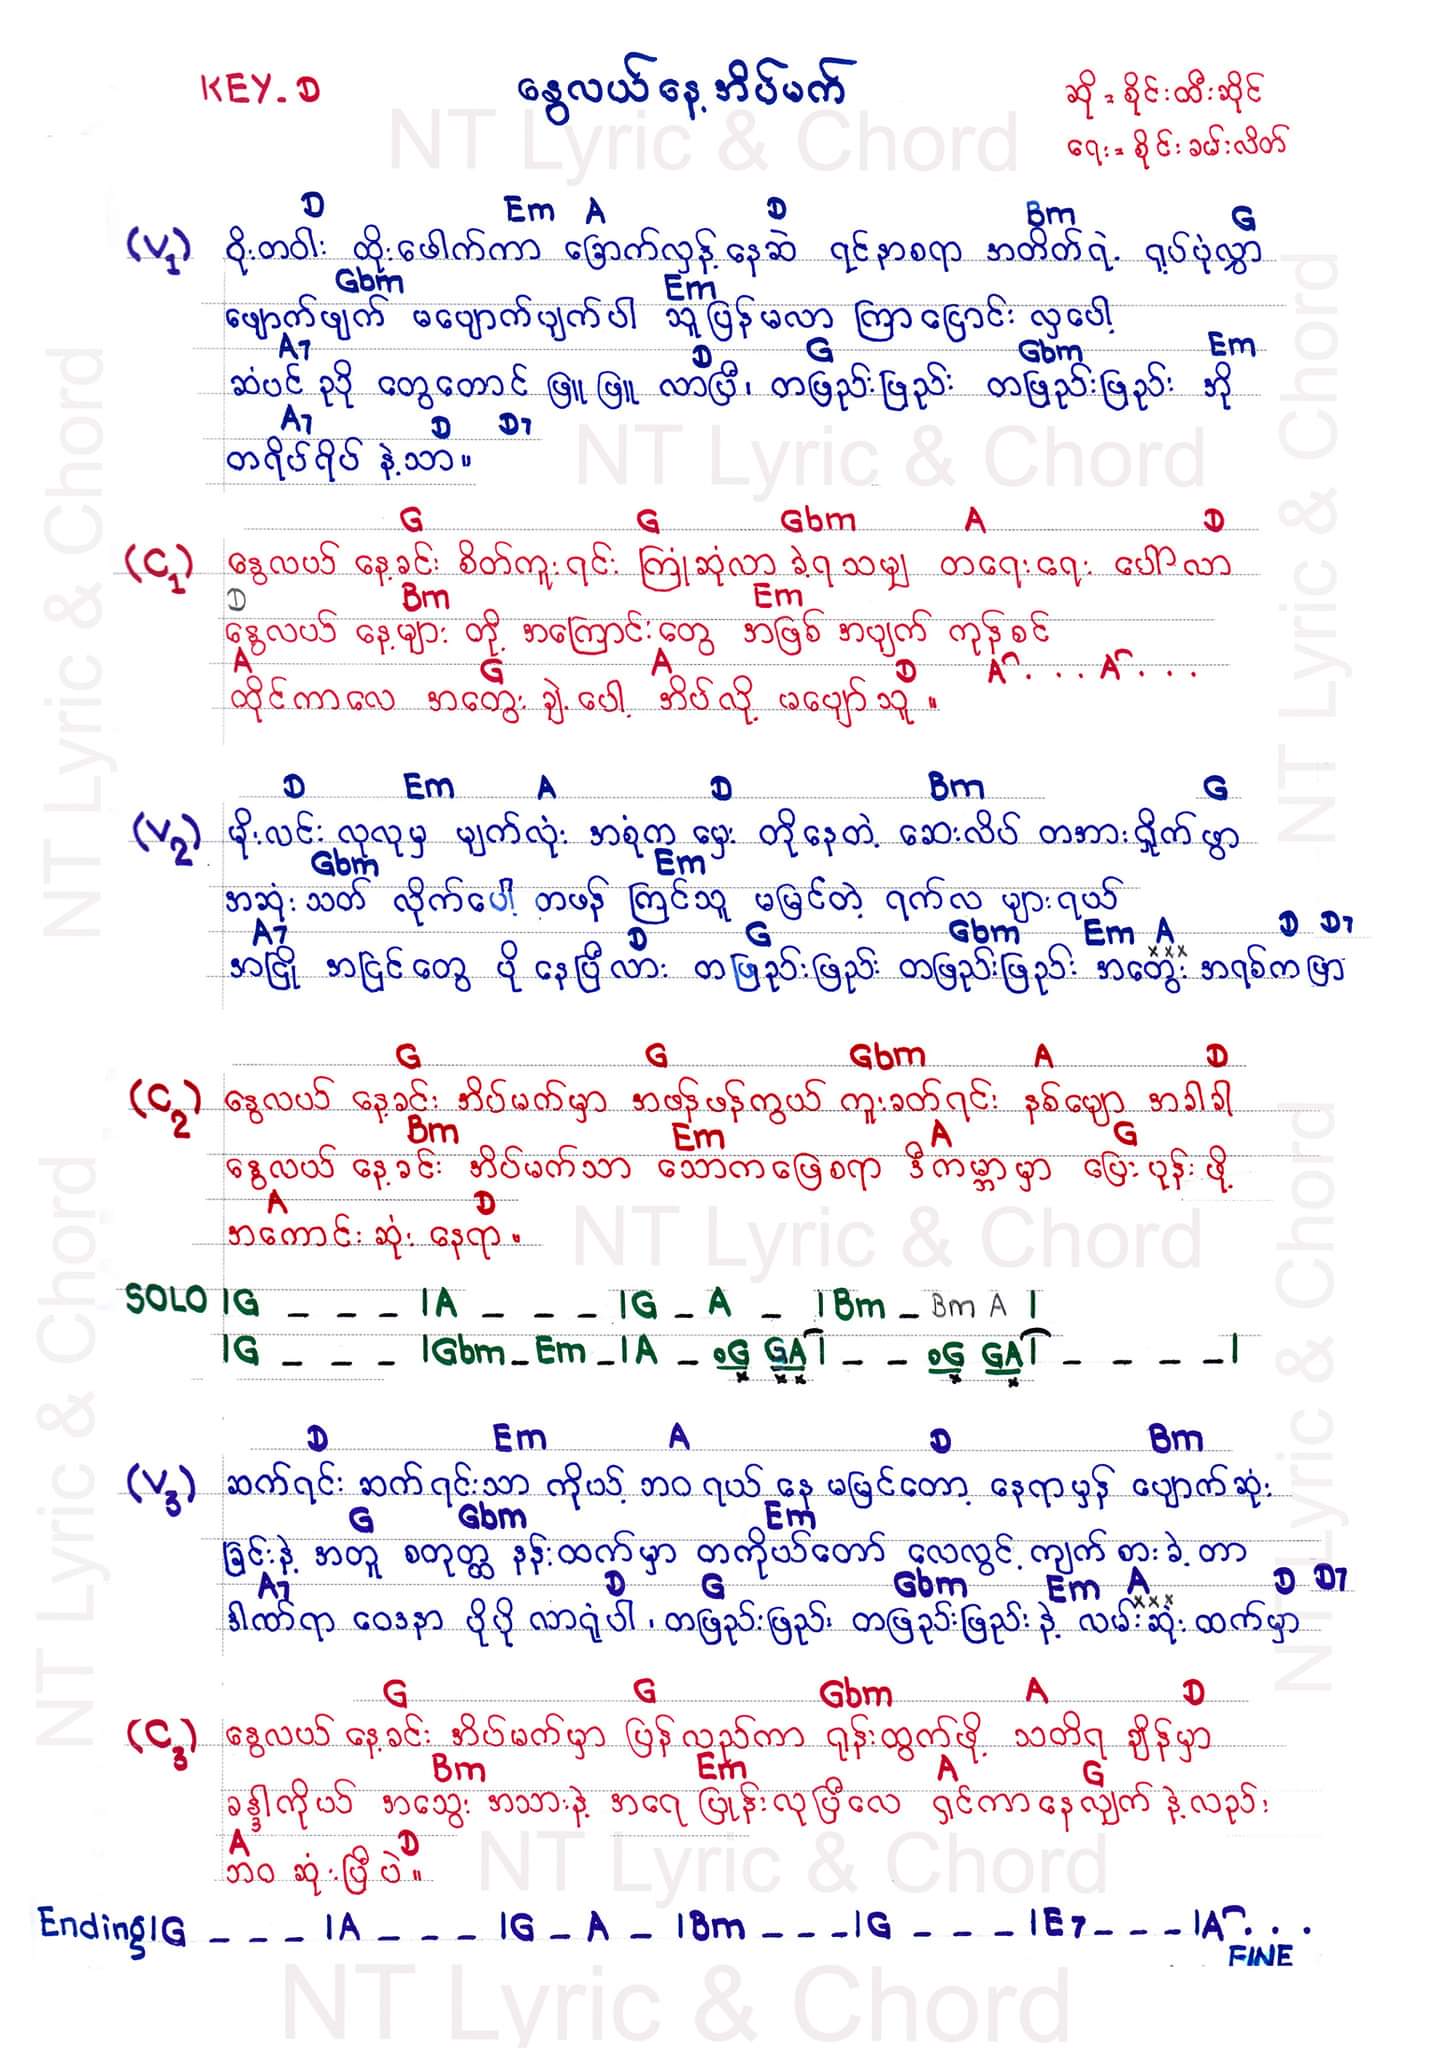 KEY-D
နွေလယ်နေ့အိပ်မက်
ဆို = စိုင်းထီးဆိုင်
ရေး = စိုင်းခမ်းလိတ်
NT Lyric & Chord
D Em A D Bm G
(V1) ဝိုးတဝါး ထိုးဖေါက်ကာ ခြောက်လှန့်နေဆဲ ရင်နာစရာ အတိတ်ရဲ့ ရုပ်ပုံလွှာ
Gbm Em
ဖျောက်ဖျက် မပျောက်ပျက်ပါ သူပြန်မလာ ကြာငြောင်း လှပေါ့
A7 D G Gbm Em
ဆံပင် ခုကို တွေတောင် ဖြူဖြူ လာပြီ၊ တဖြည်းဖြည်း တဖြည်းဖြည်း အို
A7 D D7
တရိပ်ရိပ် နဲ့သာ။
NT Lyric & Chord
G G Gbm A D
(C1) နွေလယ် နေ့ခင်း စိတ်ကူးရင်း ကြုံဆုံလာ ခဲ့ရသမျှ တရေးရေး ပေါ်လာ
D Bm Em
နွေလယ် နေ့များ တို့ အကြောင်းတွေ အဖြစ် အပျက် ကုန်စင်
A G A D A... A...
ထိုင်ကာလေ အတွေး ချဲ့ပေါ့ အိပ်လို့ မပျော်သူ။
D Em A D Bm G
(V2) မိုးလင်း လုလုမှ မျက်လုံး အစုံက မှေး တိုနေတဲ့ ဆေးလိပ် တအားရှိုက်ဖွာ
Gbm Em
အဆုံးသတ် လိုက်ပေါ့ တဖန် ကြင်သူ မမြင်တဲ့ ရက်လ များရယ်
A7 D G Gbm Em A D D7
xxx
အငြို အငြင်တွေ ပို နေပြီလား တဖြည်းဖြည်း တဖြည်းဖြည်း အတွေး အရစ်ကဖြာ
G G Gbm A D
(C2) နွေလယ် နေ့ခင်း အိပ်မက်မှာ အဖန်ဖန်ကွယ် ကူးခတ်ရင်း နစ်မျော အခါခါ
Bm Em A G
နွေလယ် နေ့ခင်း အိပ်မက်သာ သောကဖြေစရာ ဒီကမ္ဘာမှာ ပြေးပုန်းဖို့
A D
အကောင်းဆုံး နေရာ။
NT Lyric & Chord
SOLO |G _ _ _ |A _ _ _ |G _ A _ |Bm _ Bm A |
|G _ _ _ |Gbm _ Em _ |A _ oG GA| _ _ oG GA| _ _ _ _|
D Em A D Bm
(V3) ဆက်ရင်း ဆက်ရင်းသာ ကိုယ့် ဘဝရယ် နေ မမြင်တော့ နေရာမှန် ပျောက်ဆုံး
G Gbm Em
ခြင်းနဲ့ အတူ စတုတ္ထ နန်းထက်မှာ တကိုယ်တော် လေလွင့် ကျက်စားခဲ့တာ
A7 D G Gbm Em A D D7
xxx
ဒါဏ်ရာ ဝေဒနာ ပိုပို လာရုံပါ၊ တဖြည်းဖြည်း တဖြည်းဖြည်းနဲ့ လမ်းဆုံးထက်မှာ
G G Gbm A D
(C3) နွေလယ် နေ့ခင်း အိပ်မက်မှာ ပြန်လှည့်ကာ ရုန်းထွက်ဖို့ သတိရ ချိန်မှာ
Bm Em A G
ခန္ဓာကိုယ် အသွေး အသားနဲ့ အရေ ပြုန်းလုပြီလေ ရှင်ကာနေလျှက် နဲ့လည်း
A D
ဘဝ ဆုံးပြီ ပဲ။
NT Lyric & Chord
Ending |G _ _ _ |A _ _ _ |G _ A _ |Bm _ _ _ |G _ _ _ |E7 _ _ _ |A...
FINE
NT Lyric & Chord
NT Lyric & Chord
NT Lyric & Chord
NT Lyric & Chord
NT Lyric & Chord